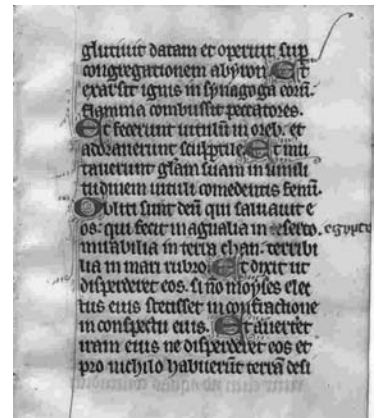 glutiuit datam et operuit sup
congregationem abyron Et
exarsit ignis in synagoga eorū.
flamma combussit peccatores.
Et fecerunt uitulū in oreb. et
adorauerunt sculptile Et mu
tauerunt glām suam in simili
tudinem uituli comedentis fenū.
Obliti sunt deū qui saluauit e
os: qui fecit magnalia in egypto
mirabilia in terra cham. terribi
lia in mari rubro Et dixit ut
disperderet eos. si nō moyses elec
tus eius stetisset in confractione
in conspectu eius. Et auerteret
iram eius ne disperderet eos et
pro nichilo habuerūt terrā desi